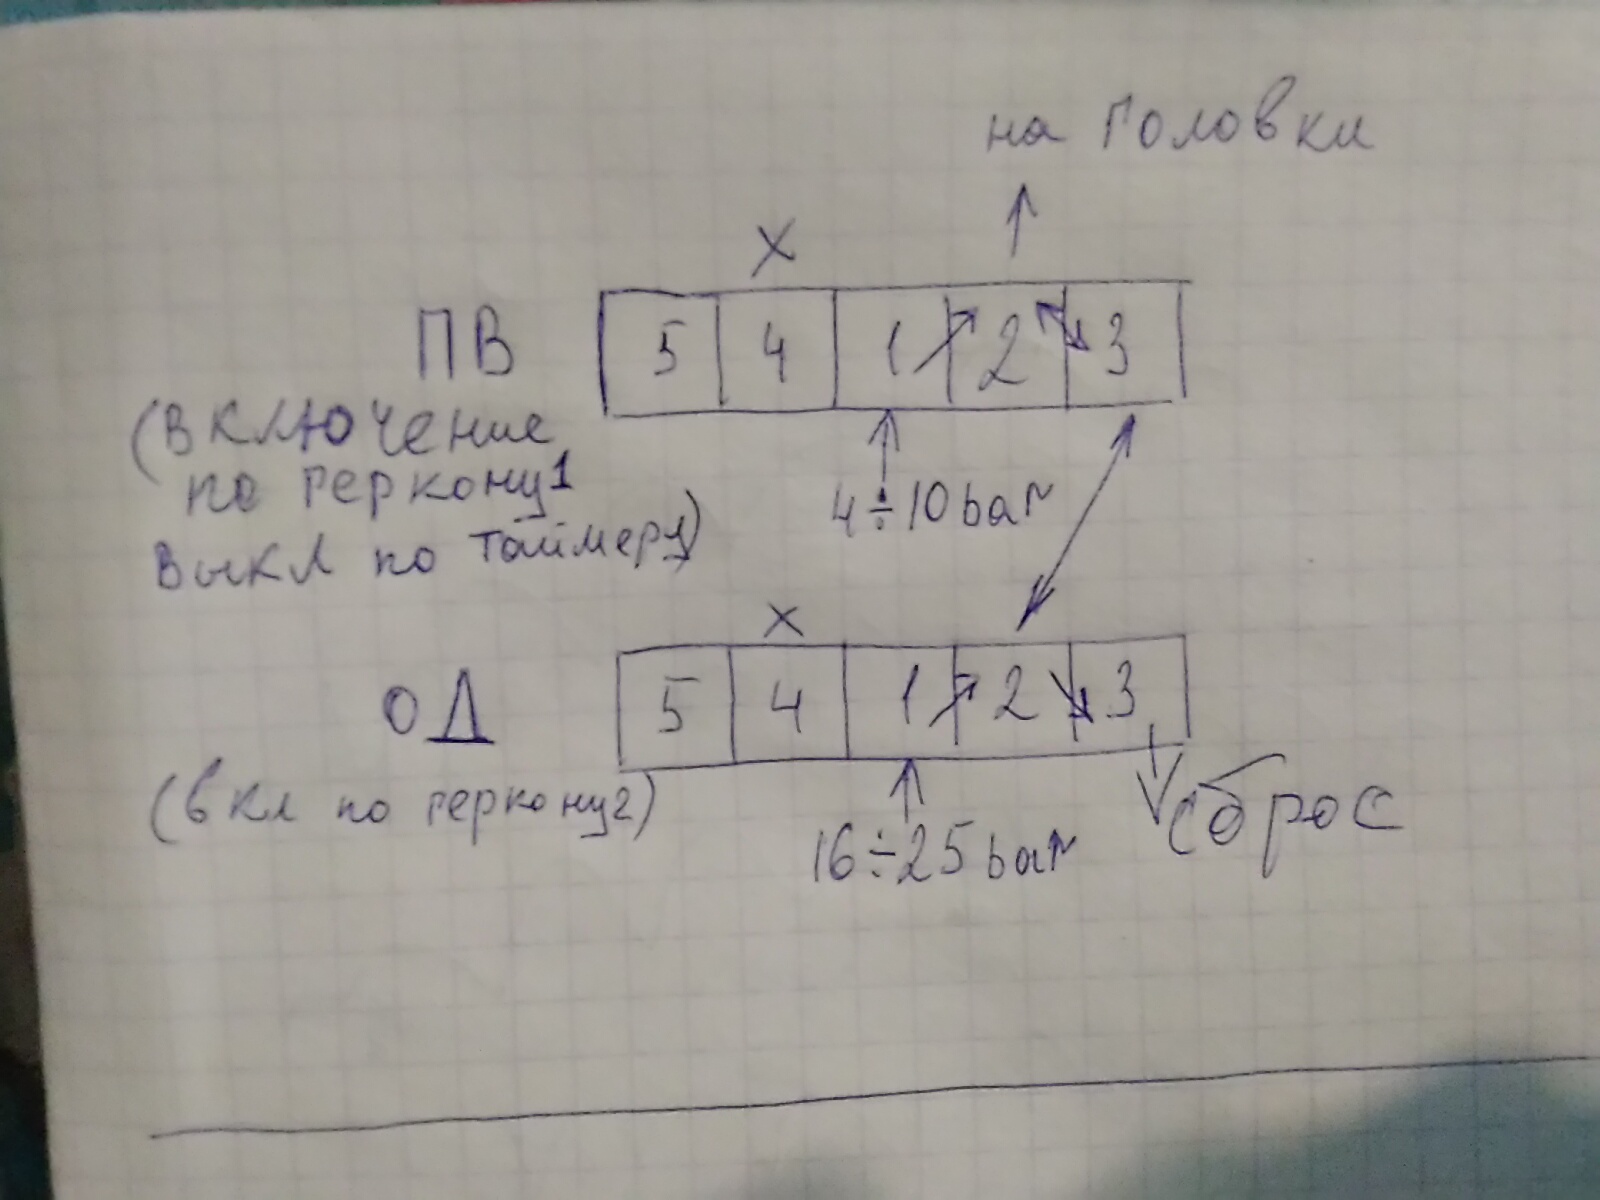 на головки
х
ПВ
5 4 1 2 3
(включение
по геркону1
4÷10 bar
выкл по таймеру)
х
ОД
5 4 1 2 3
(вкл по геркону2)
16÷25 bar
сброс